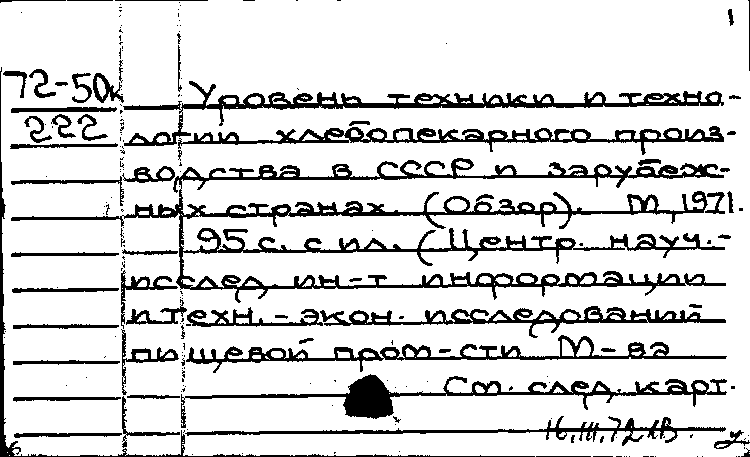 1
72-50к
222
Уровень техники и техно-
логии хлебопекарного произ-
водства в СССР и зарубеж-
ных странах. (Обзор). М, 1971.
95 с. с ил. (Центр. науч.-
исслед. ин-т информации
и техн.-экон. исследований
пищевой пром-сти М-ва
См. след. карт.
16.III.72